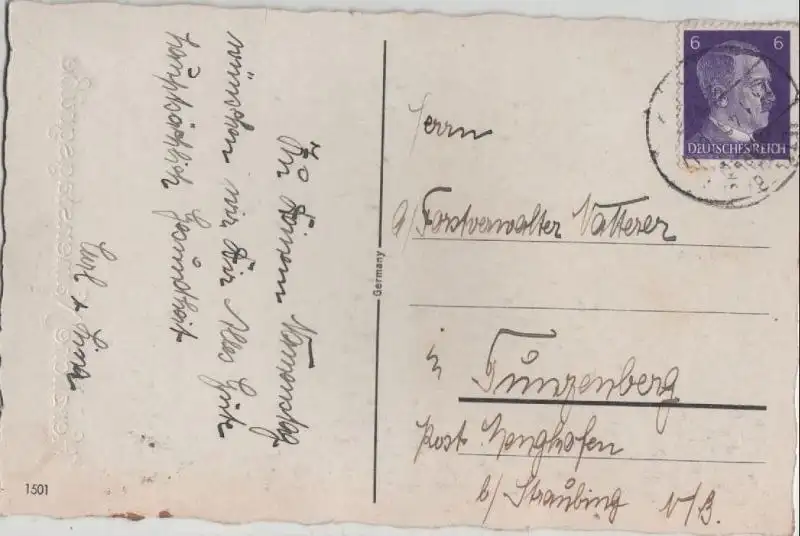 Zu Deinem Namenstag
wünschen wir Dir Alles Gute
hauptsächlich Gesundheit
1501
Germany
6 6
DEUTSCHES REICH
Herrn
a/ Forstverwalter Vatterer
in Tunzenberg
Post Mengkofen
b/ Straubing N/B.